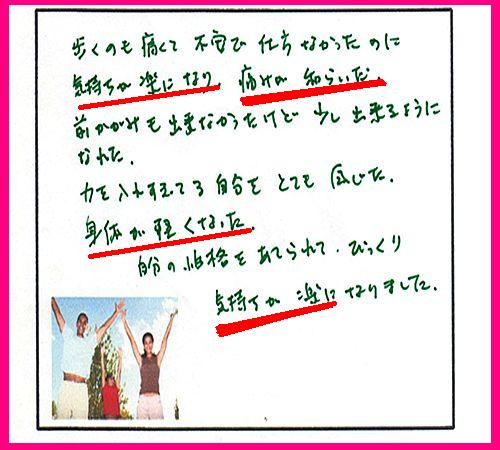 歩くのも痛くて 不安で 仕方なかったのに
気持ちが楽になり 痛みが 和らいだ。
前かがみも出来なかったけど 少し出来るように
なれた。
力を入れすぎてる自分を とても 感じた。
身体が軽くなった
自分の性格をあてられて、びっくり
気持ちが 楽になりました。